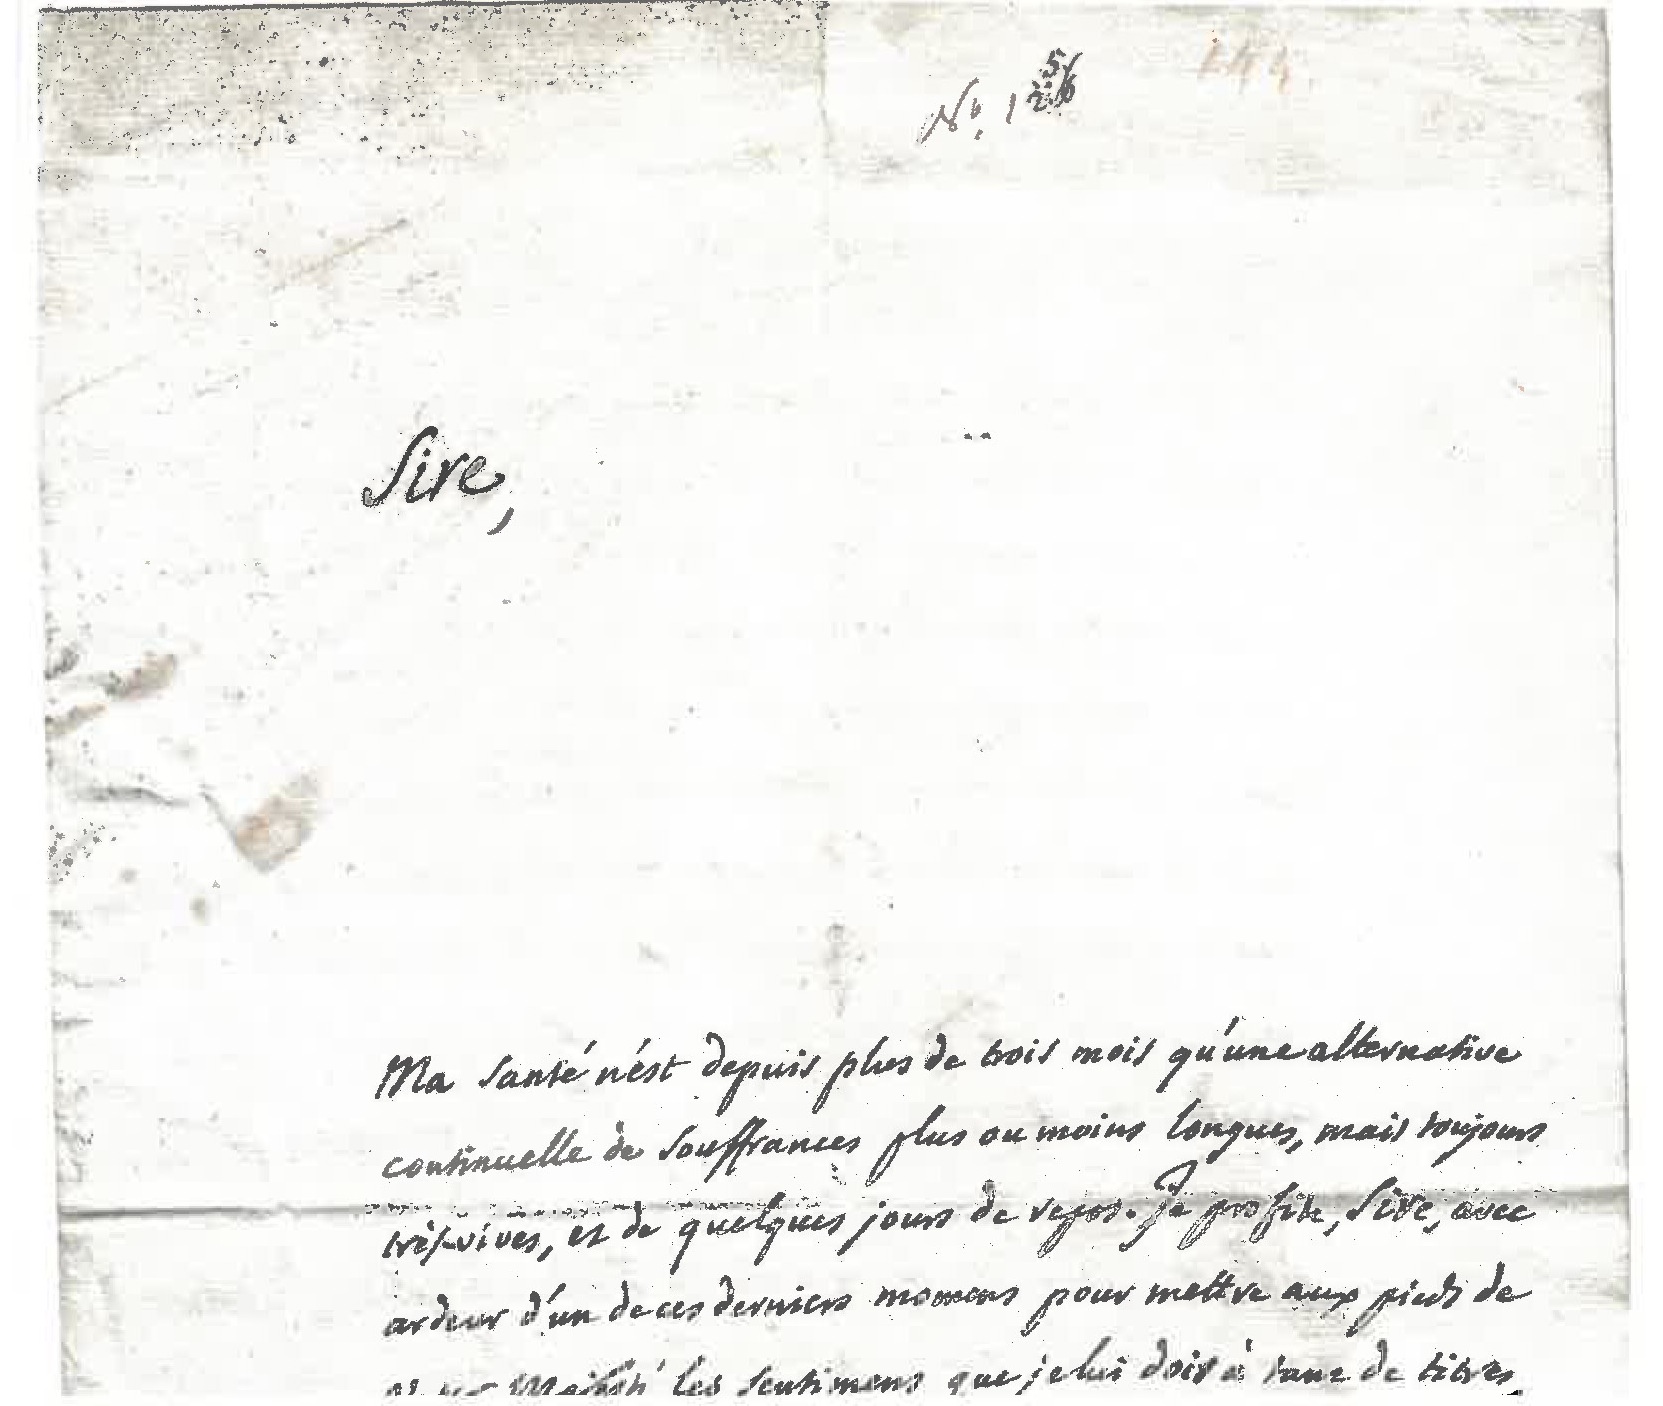 No. 1
Sire,
Ma santé n'ést depuis plus de trois mois qu'une alternative
continuelle de souffrances plus ou moins longues, mais toujours
très-vives, et de quelques jours de repos. Je profite, Sire, avec
ardeur d'un de ces derniers momens pour mettre aux pieds de
Majesté les sentimens que je lui dois à tant de titres,